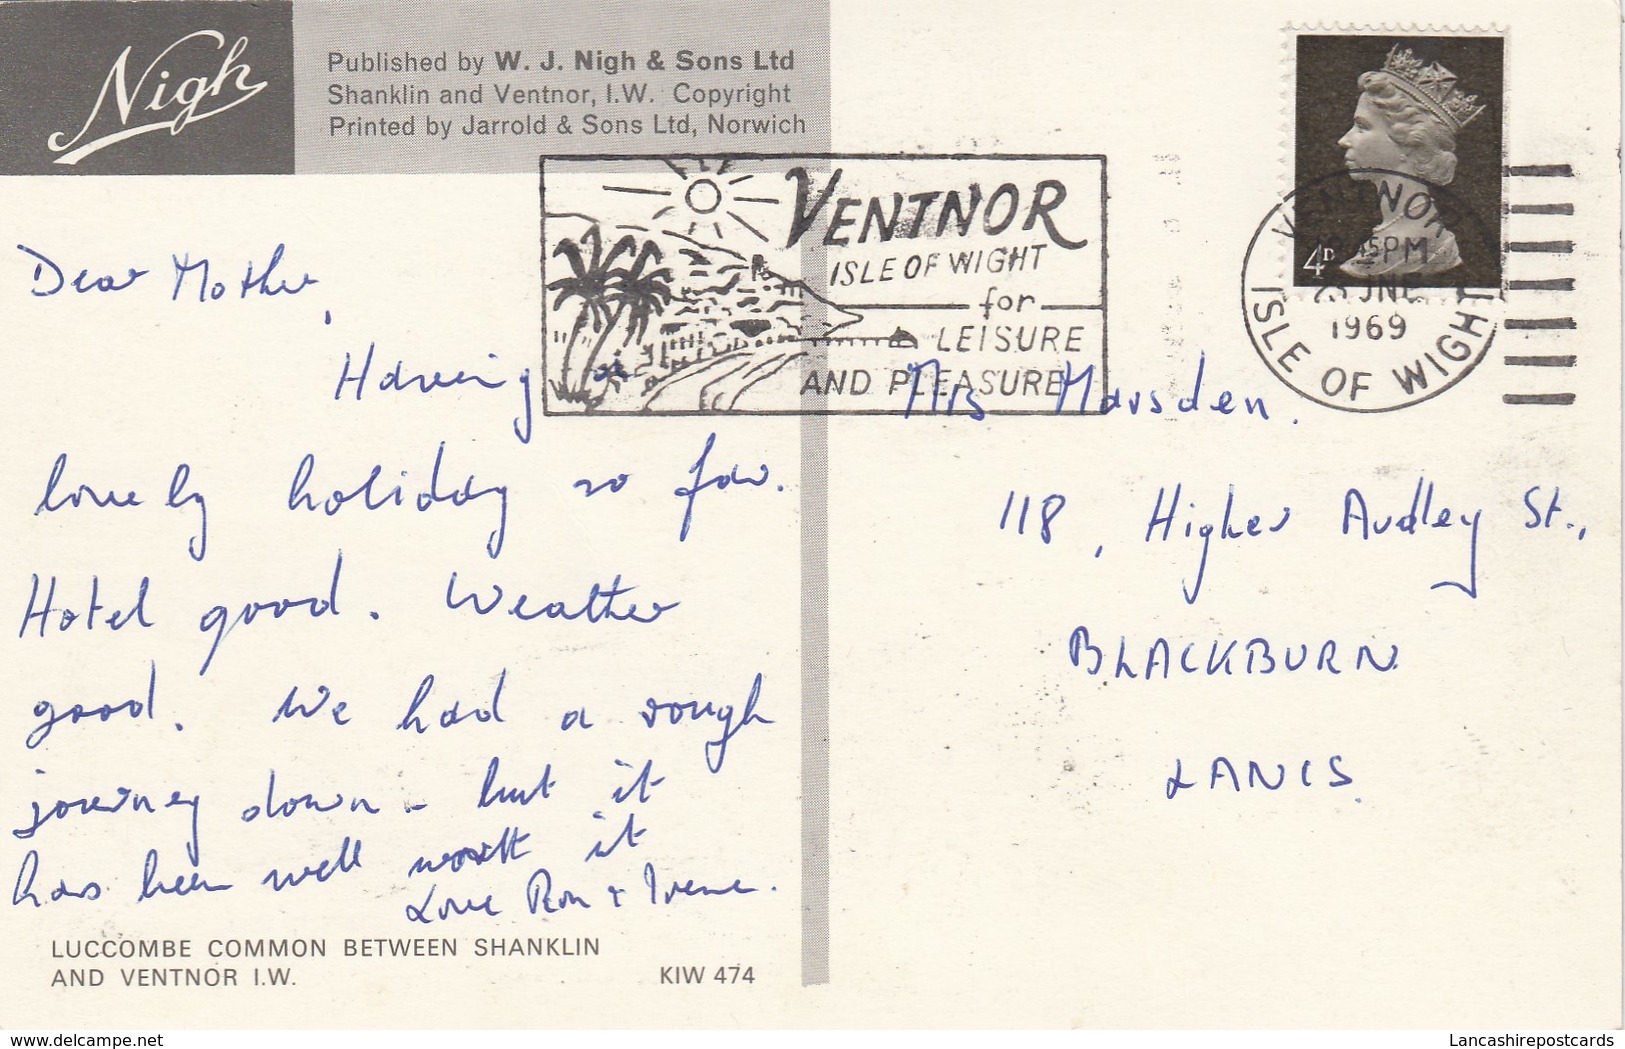 Nigh
Published by W. J. Nigh & Sons Ltd
Shanklin and Ventnor, I.W. Copyright
Printed by Jarrold & Sons Ltd, Norwich
VENTNOR
ISLE OF WIGHT
for
LEISURE
AND PLEASURE
4D
VENTNOR
PM
JNE
1969
ISLE OF WIGHT
Dear Mother,
Having a
lovely holiday so far.
Hotel good. Weather
good. We had a rough
journey down - but it
has been well worth it
Love Ron & Irene.
Mrs Marsden.
118, Higher Audley St.,
BLACKBURN
LANCS.
LUCCOMBE COMMON BETWEEN SHANKLIN
AND VENTNOR I.W.
KIW 474
www.delcampe.net
Lancashirepostcards